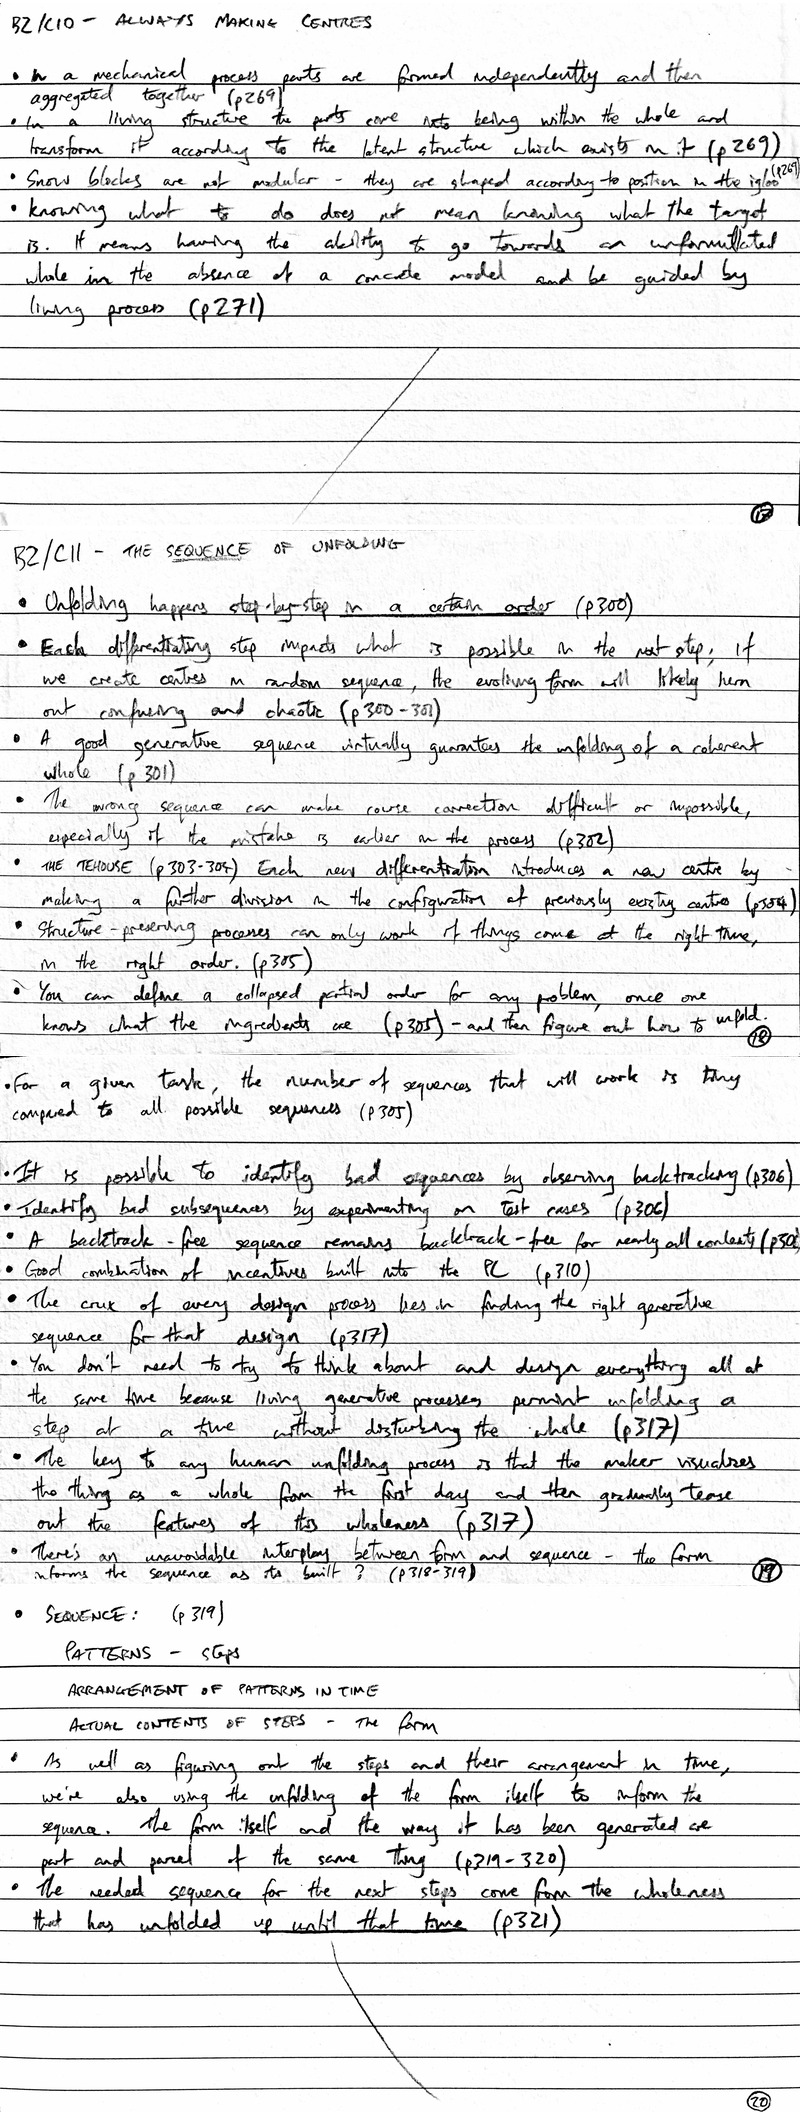 B2/C10 - ALWAYS MAKING CENTRES
• In a mechanical process parts are formed independently and then
aggregated together (p269)
• In a living structure the parts come into being within the whole and
transform it according to the latent structure which exists in it (p269)
• Snow blocks are not modular - they are shaped according to position in the igloo (p269)
• Knowing what to do does not mean knowing what the target
is. It means having the ability to go towards an unformulated
whole in the absence of a concrete model and be guided by
living process (p271)
17
B2/C11 - THE SEQUENCE OF UNFOLDING
• Unfolding happens step-by-step in a certain order (p300)
• Each differentiating step impacts what is possible in the next step; if
we create centres in random sequence, the evolving form will likely turn
out confusing and chaotic (p300-301)
• A good generative sequence virtually guarantees the unfolding of a coherent
whole (p301)
• The wrong sequence can make course correction difficult or impossible,
especially if the mistake is earlier in the process (p302)
• THE TEHOUSE (p303-304) Each new differentiation introduces a new centre by
making a further division in the configuration of previously existing centres (p304)
• Structure-preserving processes can only work if things come at the right time,
in the right order. (p305)
• You can define a collapsed partial order for any problem, once one
knows what the ingredients are (p305) - and then figure out how to unfold.
18
• For a given task, the number of sequences that will work is tiny
compared to all possible sequences (p305)
• It is possible to identify bad sequences by observing backtracking (p306)
• Identify bad subsequences by experimenting on test cases (p306)
• A backtrack-free sequence remains backtrack-free for nearly all contexts (p306)
• Good combination of incentives built into the PL (p310)
• The crux of every design process lies in finding the right generative
sequence for that design (p317)
• You don't need to try to think about and design everything all at
the same time because living generative processes permint unfolding a
step at a time without disturbing the whole (p317)
• The key to any human unfolding process is that the maker visualizes
the thing as a whole from the first day and then gradually tease
out the features of this wholeness (p317)
• There's an unavoidable interplay between form and sequence - the form
informs the sequence as its built? (p318-319)
19
• SEQUENCE: (p319)
PATTERNS - steps
ARRANGEMENT OF PATTERNS IN TIME
ACTUAL CONTENTS OF STEPS - the form
• As well as figuring out the steps and their arrangement in time,
we're also using the unfolding of the form itself to inform the
sequence. The form itself and the way it has been generated are
part and parcel of the same thing (p319-320)
• The needed sequence for the next steps come from the wholeness
that has unfolded up until that time (p321)
20